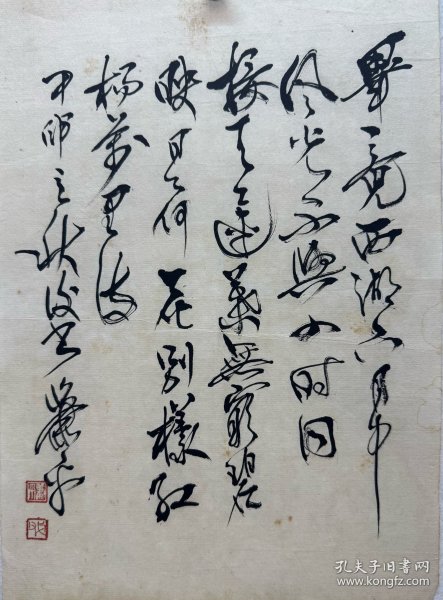 畢竟西湖六月中
风光不與四时同
接天蓮葉無窮碧
映日荷花别樣红
杨萬里诗
丁卯之秋
孔夫子旧书网
www.kongfz.com